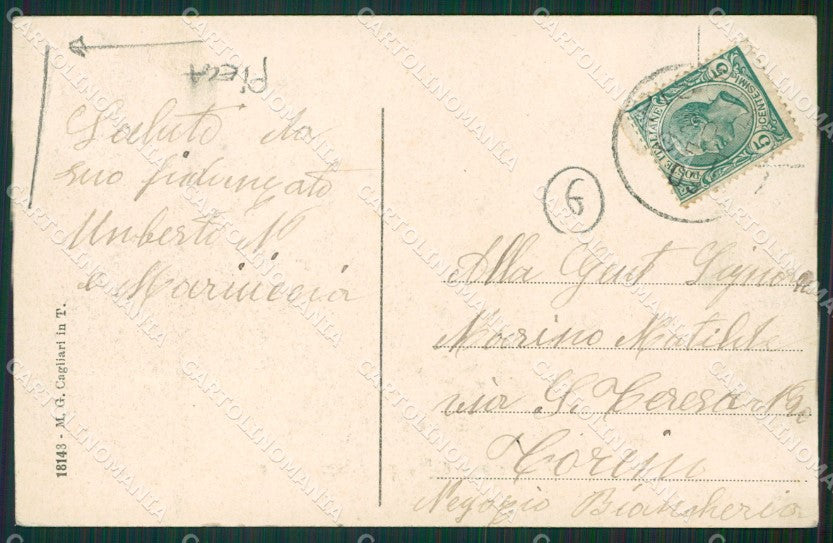 PIEGA
Saluto da
suo fidanzato
Umberto N
e Mariuccia
6
Alla Gent Signora
Marino Matilde
via S. Teresa N
Torino
Negozio Biancheria
18143 - M. G. Cagliari in T.
POSTE ITALIANE
CENTESIMI
5
5
CARTOLINOMANIA